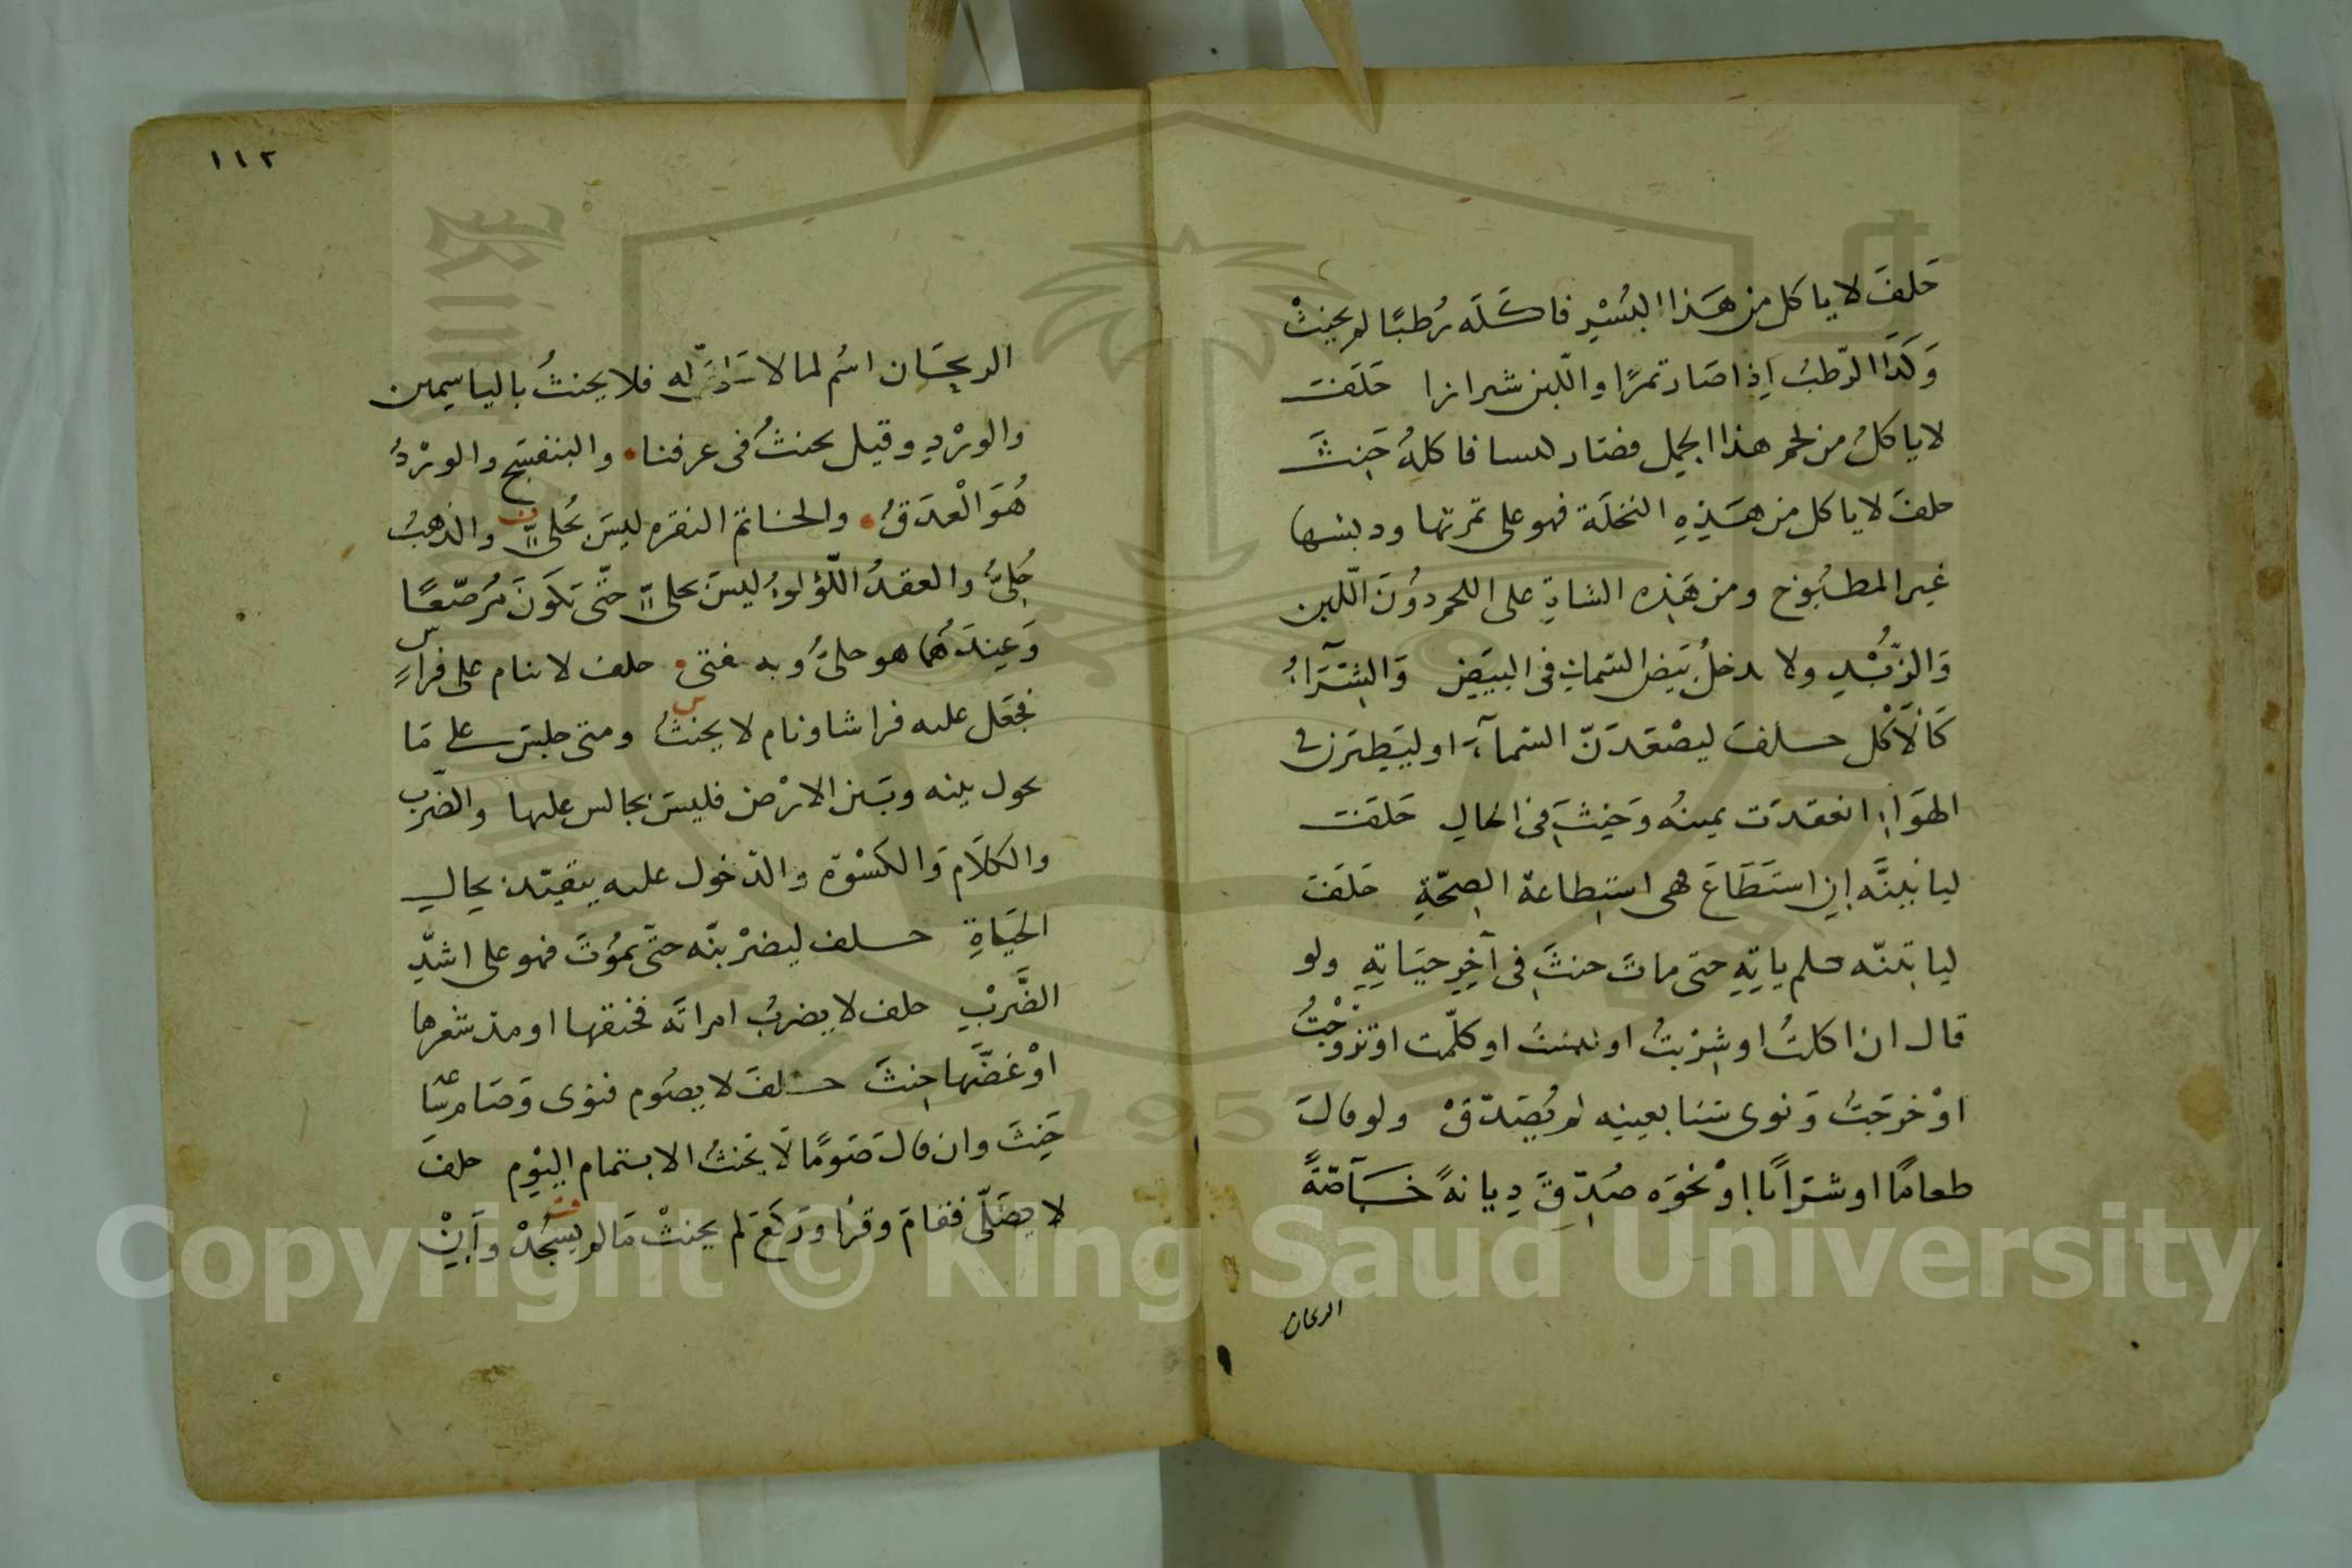 حَلفَ لا ياكل من هَذا البُسْرِ فاكَلَه رُطبًا لم يحنِثْ
وَكَذَا الرّطبُ اِذا صَار تمرًا واللّبن شيرازا حَلَفَ
لا ياكلُ من لحم هذا الحمل فصَار كبسا فاكلهُ حَنِثَ
حلفَ لا ياكل من هَذِهِ النخلَة فهو على تمرتها ودبسها
غير المطبُوخ ومن هَذِه الشاةِ على اللحم دُونَ اللّبن
وَالزّبْدِ ولا يدخلُ بَيض السّمك فى البيَضِ وَالشِرَاءُ
كَالاَكْل حلفَ ليصْعَدَنّ السّمآءَ او ليَطيرَن فى
الهوَاءِ انعقدَت يمينُه وَحَنِثَ فى الحالِ حَلفَ
لياتينَّه اِن استَطَاعَ فهى استِطاعة الصِحّةِ حَلفَ
لياتينّه فلم ياتِهِ حتى ماتَ حنثَ فى آخِرِ حيَاتِهِ ولو
قال ان اكلتُ او شِرْبتُ او لبستُ او كلّمت او تزوّجْتُ
اوْ خرَجَتُ وَنوى شيئا بعينِه لم يُصَدّقْ ولو قالَ
طعامًا او شرَابًا اوْ نحوَه صُدِّقَ دِيانةً خَاصّةً
الريحان
١١٢
الريحَان اسُم لما لا سَاقَ له فلا يحنثُ بالياسِمين
والورْدِ وقيل يحنثُ فى عرفنا والبنفسَج والورْدُ
هُوَ الْعرَقُ والخاتمُ النقره ليسَ بحُلىّ والذهبُ
حُلِىُّ والعقدُ اللّؤلوءُ ليسَ بحلىّ حتّى يَكونَ مُرَصّعًا
وَعِندَهُمَا هو حلىُّ وبه يفتى حلف لا ينام على فراشٍ
فجعَل عليه فراشا ونام لا يحنثُ ومتى جلسَ على مَا
يحول بينه وبَين الارْض فليسَ بجالس عليها والضّرب
والكلاَم وَالكسْوَة والدّخول عليه يتقيّد بحالِ
الحَيَاةِ حلف ليضرْبنّه حتّى يموُتَ فهو على اشدّ
الضَّرْبِ حلف لا يضربُ امراته فخنقها او مدّ شعرها
اوْ عَضّهَا حِنثَ حلفَ لا يصُوم فنوى وَصَام سَاعة
حَنِثَ وان قالَ صَومًا لاَ يحْنثُ الا بتمام اليوْم حلفَ
لا يصَلّى فقامَ وقرا ورَكعَ لم يحنثْ مَا لم يسجُدْ وَاِنْ